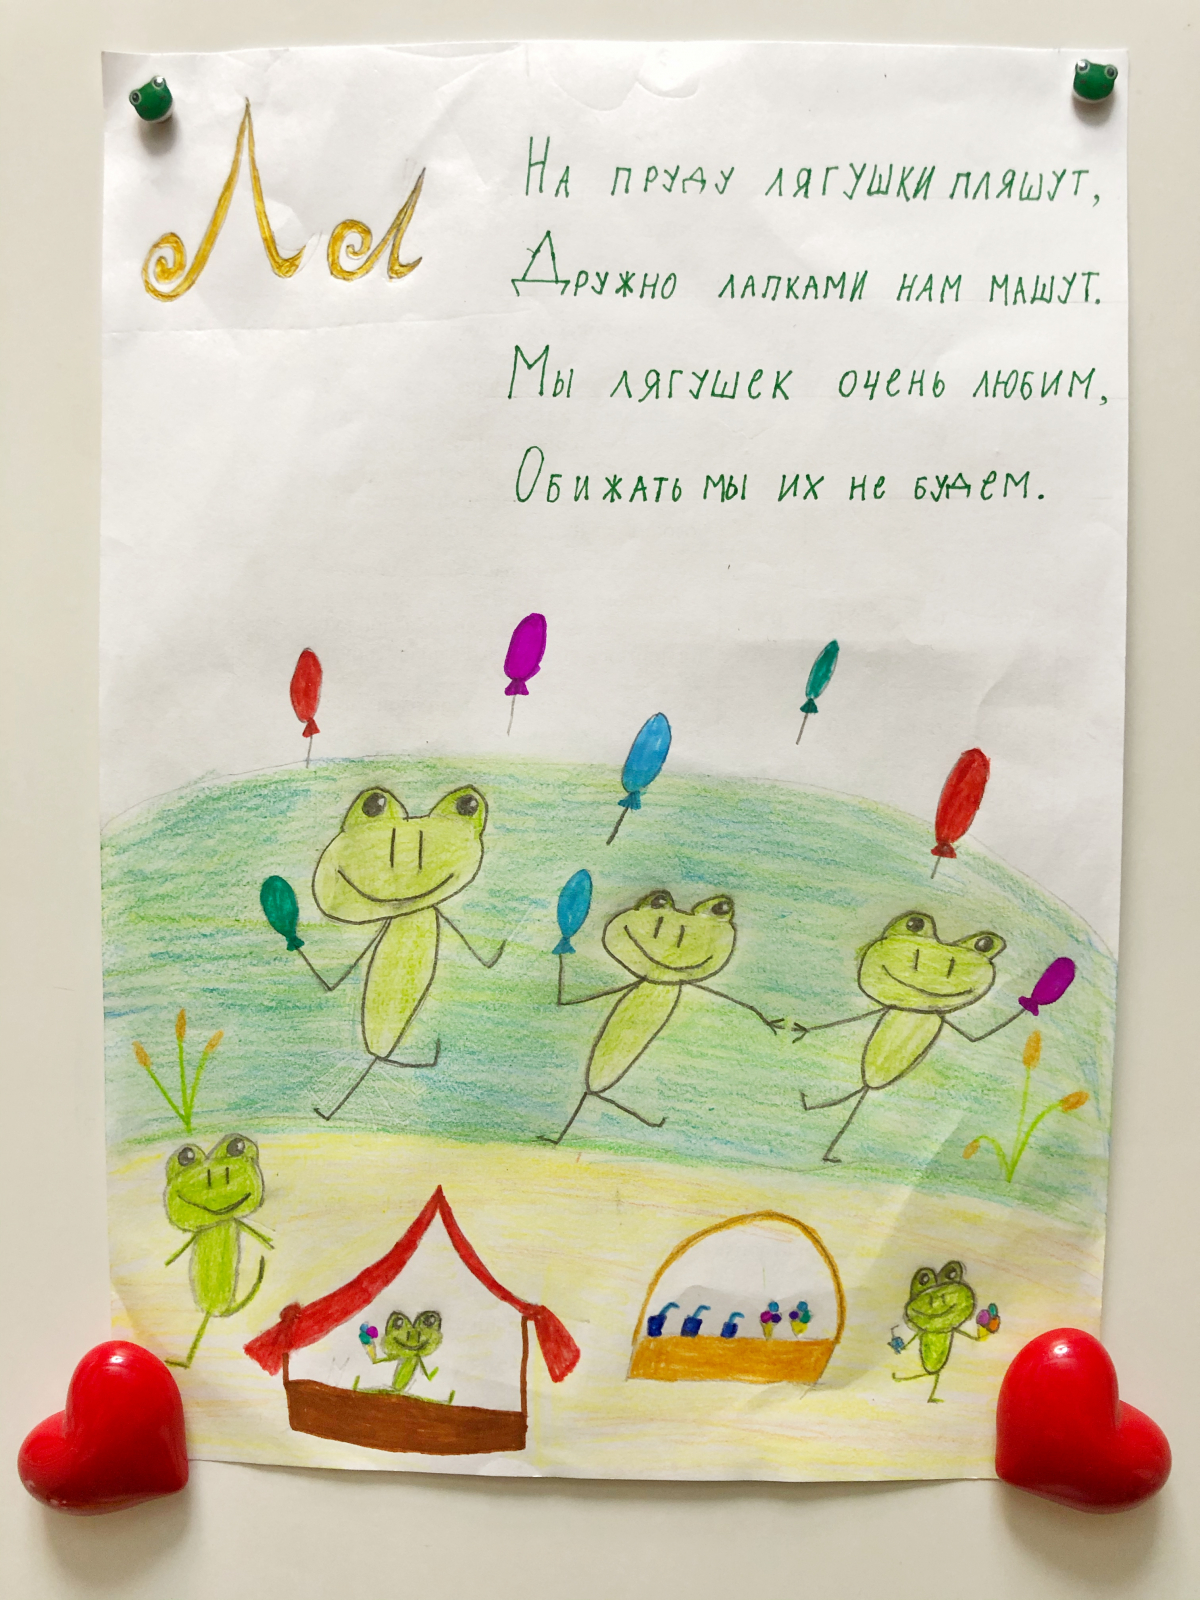 Лл
На пруду лягушки пляшут,
Дружно лапками нам машут.
Мы лягушек очень любим,
Обижать мы их не будем.